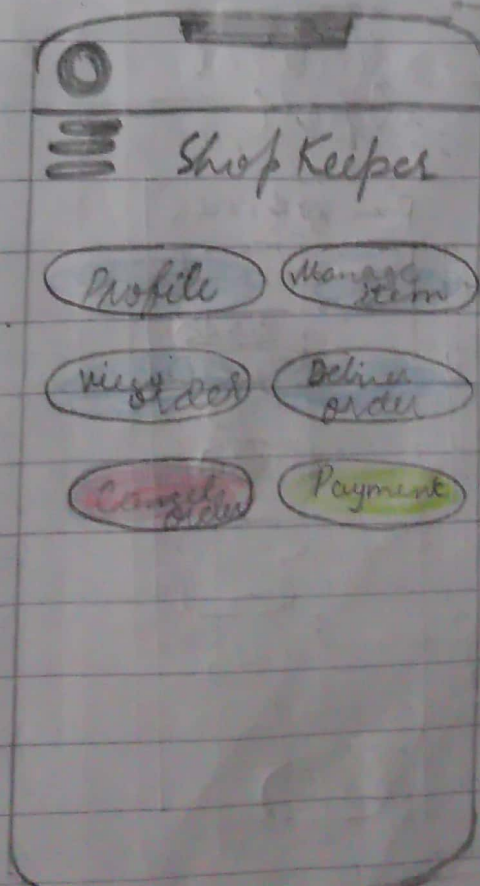 Shop Keeper
Profile
Manage
item
View
order
Deliver
order
Cancel
order
Payment